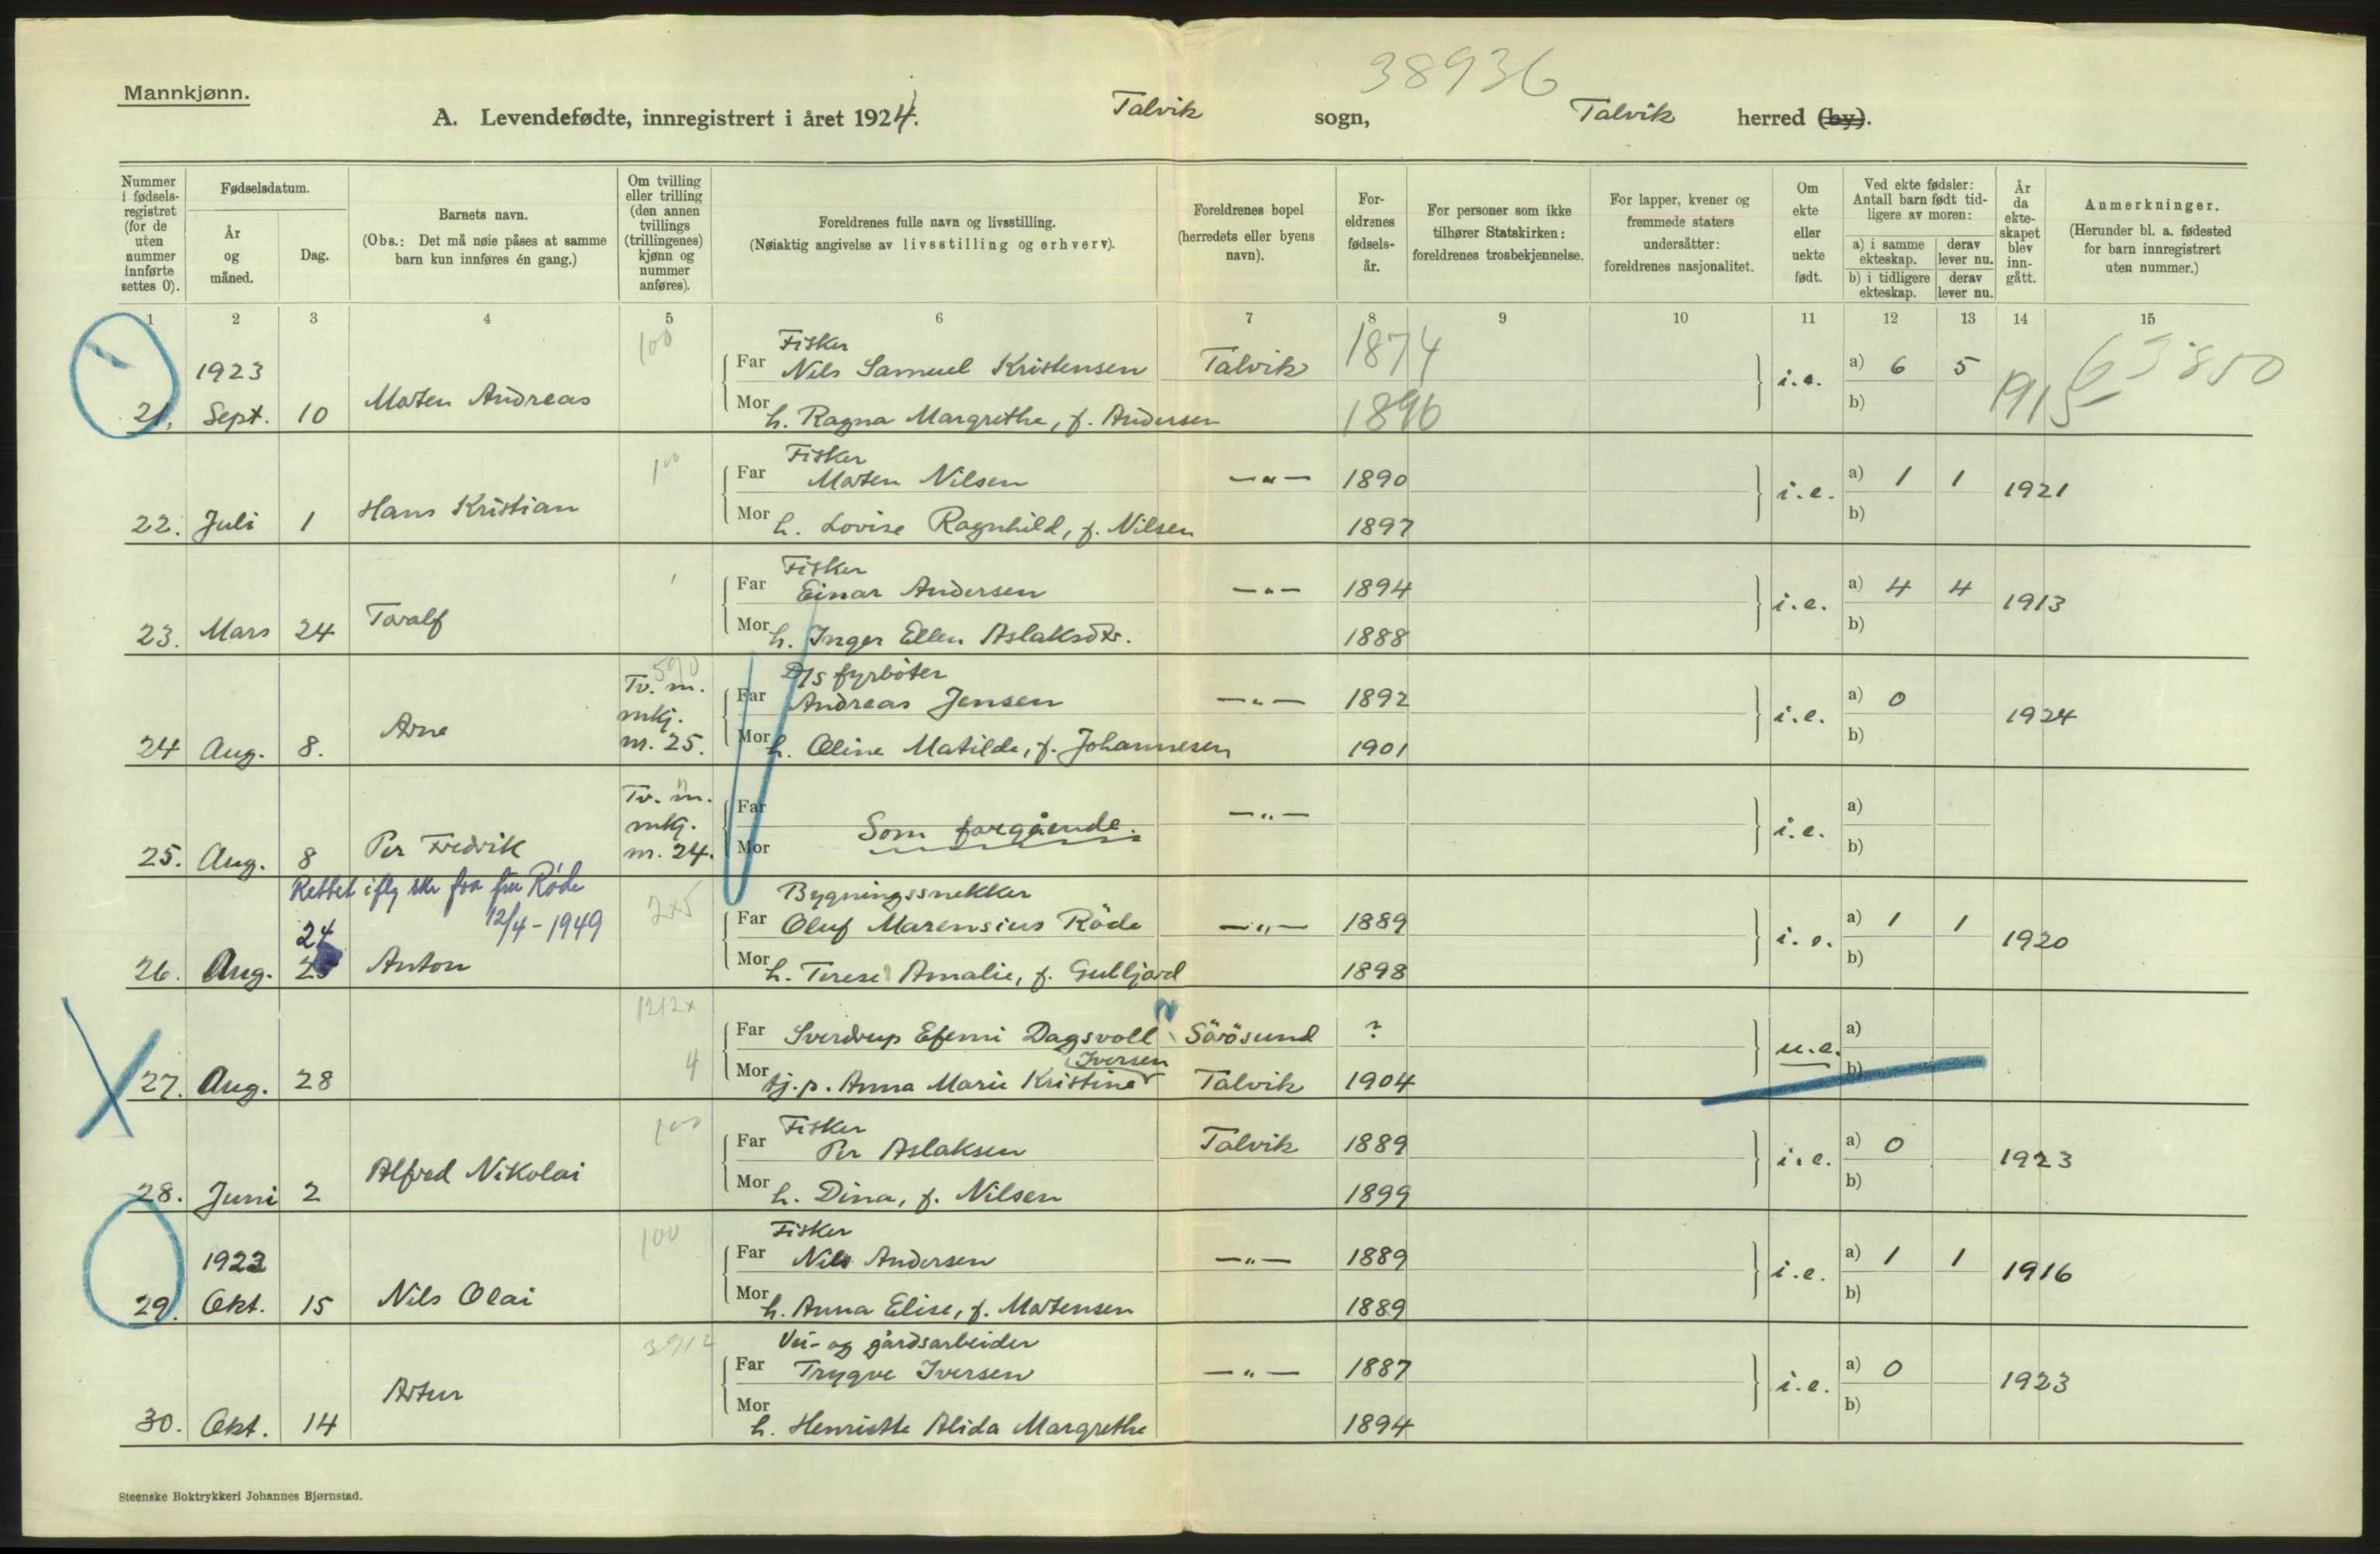 38936
Mannkjønn.
A. Levendefødte, innregistrert i året 1924. Talvik sogn, Talvik herred (by).
Nummer i fødselsregistret (for de uten nummer innførte settes 0). Fødselsdatum. År og måned. Dag. Barnets navn. (Obs.: Det må nøie påses at samme barn kun innføres én gang.) Om tvilling eller trilling (den annen tvillings (trillingenes) kjønn og nummer anføres). Foreldrenes fulle navn og livsstilling. (Nøiaktig angivelse av livsstilling og erhverv). Foreldrenes bopel (herredets eller byens navn). Foreldrenes fødselsår. For personer som ikke tilhører Statskirken: foreldrenes trosbekjennelse. For lapper, kvener og fremmede staters undersåtter: foreldrenes nasjonalitet. Om ekte eller uekte født. Ved ekte fødsler: Antall barn født tidligere av moren: a) i samme ekteskap. derav lever nu. b) i tidligere ekteskap. derav lever nu. År da ekteskapet blev inngått. Anmerkninger. (Herunder bl. a. fødested for barn innregistrert uten nummer.)
1 2 3 4 5 6 7 8 9 10 11 12 13 14 15
100 Fisker
1923 Far Nils Samuel Kristensen Talvik 1874 i.e. a) 6 5 1915 63850
21. Sept. 10 Morten Andreas Mor h. Ragna Margrethe, f. Andersen 1896 b)
100 Fisker
Far Morten Nilsen —"— 1890 i.e. a) 1 1 1921
22. Juli 1 Hans Kristian Mor h. Lovise Ragnhild, f. Nilsen 1897 b)
Fisker
Far Einar Andersen —"— 1894 i.e. a) 4 4 1913
23. Mars 24 Toralf Mor h. Inger Ellen Aslaksdtr. 1888 b)
Tv. m. D/S fyrbøter
mkj. Far Andreas Jensen —"— 1892 i.e. a) 0 1924
24 Aug. 8. Arne nr. 25. Mor h. Oline Matilde, f. Johannesen 1901 b)
Tv. m.
mkj. Far Som foregående. —"— i.e. a)
25. Aug. 8 Per Fredrik nr. 24. Mor b)
Rettet iflg skr fra fru Röde
12/4-1949
2x5 Bygningssnekker
24 Far Oluf Marensius Röde —"— 1889 i.e. a) 1 1 1920
26. Aug. 25 Anton Mor h. Terese Amalie, f. Gulljord 1898 b)
1212x Far Sverdrup Efemi Dagsvoll Sörösund ? u.e. a)
Iversen
27. Aug. 28 4 Mor tj.p. Anna Marie Kristine Talvik 1904 b)
100 Fisker
Far Per Aslaksen Talvik 1889 i.e. a) 0 1923
28. Juni 2 Alfred Nikolai Mor h. Dina, f. Nilsen 1899 b)
100 Fisker
1923 Far Nils Andersen —"— 1889 i.e. a) 1 1 1916
29. Okt. 15 Nils Olai Mor h. Anna Elise, f. Mortensen 1889 b)
3912 Vei- og gårdsarbeider
Far Trygve Iversen —"— 1887 i.e. a) 0 1923
30. Okt. 14 Artur Mor h. Henriette Alida Margrethe 1894 b)
Steenske Boktrykkeri Johannes Bjørnstad.